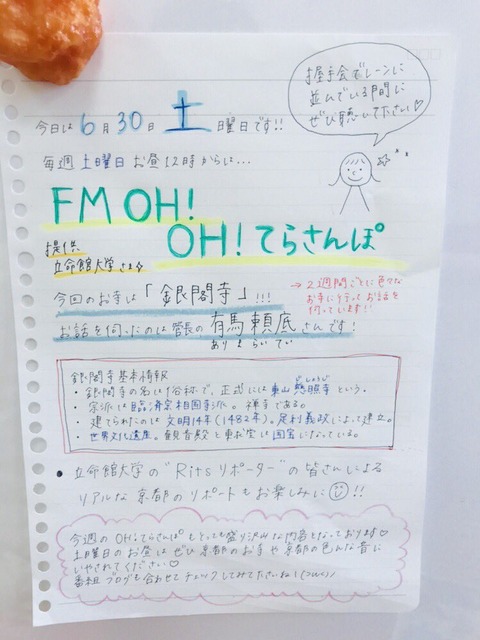 握手会でレーンに
並んでいる間に
ぜひ聴いてください♡
今日は6月30日 土曜日です!!
毎週 土曜日 お昼12時からは…
FM OH!
OH!てらさんぽ
提供
立命館大学さま
→2週間ごとに色々な
お寺に行ってお話を
伺っています!!
今回のお寺は「銀閣寺」!!!
お話を伺ったのは管長の有馬頼底さんです!
ありまらいてい
銀閣寺基本情報
・銀閣寺の名は俗称で、正式には東山慈照寺という。
じしょうじ
・宗派は臨済宗相国寺派。禅寺である。
・建てられたのは文明14年(1482年)。足利義政によって建立。
・世界文化遺産。観音殿と東求堂は国宝になっている。
●立命館大学の"Ritsリポーター"の皆さんによる
リアルな京都のリポートもお楽しみに☺!!
今週のOH!てらさんぽもとっても盛り沢山な内容となっております♡
土曜日のお昼はぜひ京都のお寺や京都の色んな音に
いやされてください♡
番組ブログも合わせてチェックしてみてくださいね!